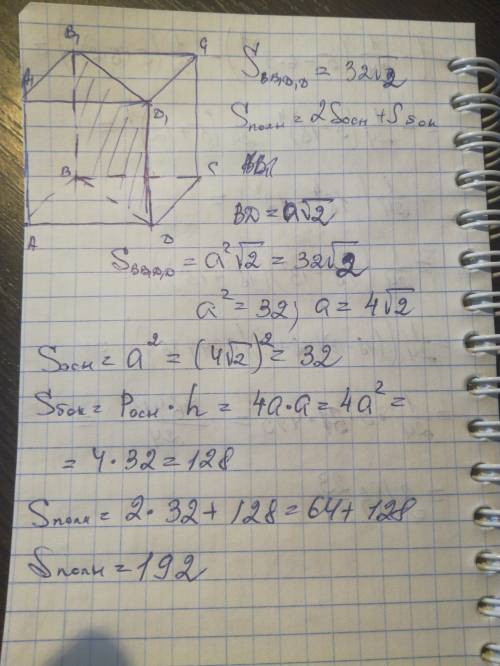 B₁
C₁
A₁
D₁
B
C
A
D
S_{BB₁D₁D} = 32√2
S_{полн} = 2S_{осн} + S_{бок}
BD = a√2
S_{BB₁D₁D} = a²√2 = 32√2
a² = 32; a = 4√2
S_{осн} = a² = (4√2)² = 32
S_{бок} = P_{осн} · h = 4a · a = 4a² =
= 4 · 32 = 128
S_{полн} = 2 · 32 + 128 = 64 + 128
S_{полн} = 192